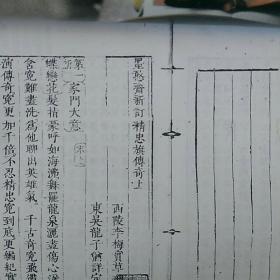 墨憨齋新訂精忠旗傳奇上
西陵李梅實草
東吳龍子猶詳定
第一折
家門大意
蝶戀花髮指豪呼如海沸舞罷龍泉灑盡傷心
含寃難盡洗爲他聊出英雄氣 千古奇寃
演傳奇寃更加千倍不忍精忠寃到底更編紀實